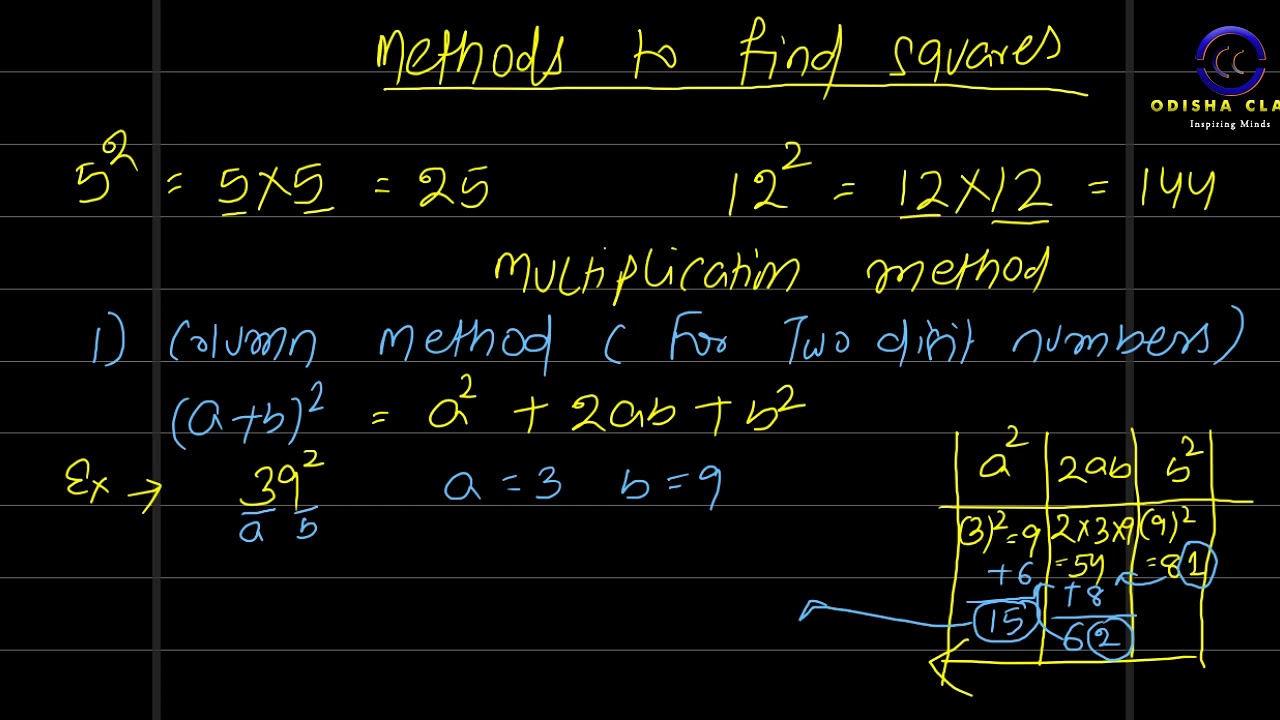 Methods to find squares
ODISHA CLA
Inspiring Minds
5² = 5×5 = 25 12² = 12×12 = 144
Multiplication method
1) Column Method ( For Two digit numbers)
(a+b)² = a² + 2ab + b²
Ex → 39² a = 3 b = 9
a b
a² 2ab b²
(3)² = 9 2×3×9 (9)²
+6 = 54 = 81
+8
15 62